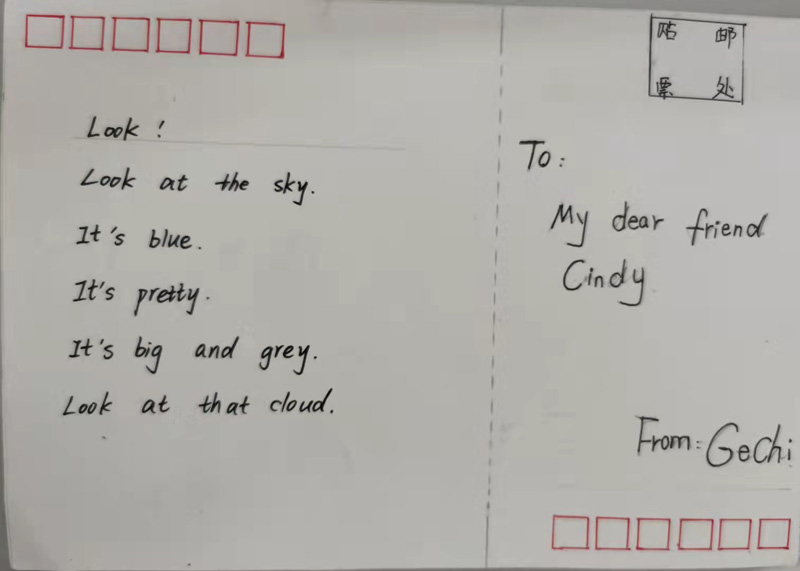 Look!
Look at the sky.
It's blue.
It's pretty.
It's big and grey.
Look at that cloud.
贴 邮
票 处
To:
My dear friend
Cindy
From: GeChi